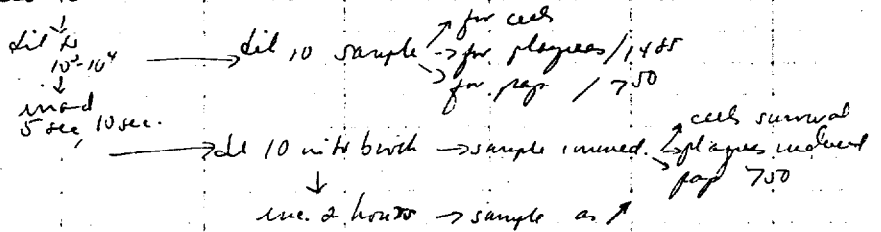 for cells
dil to
10³-10⁴
dil 10 sample
for plaques / 1485
for pap / 750
irrad
5 sec, 10 sec.
dil 10 into broth
sample immed.
cells survival
plaques induced
pap 750
inc. 2 hours
sample as